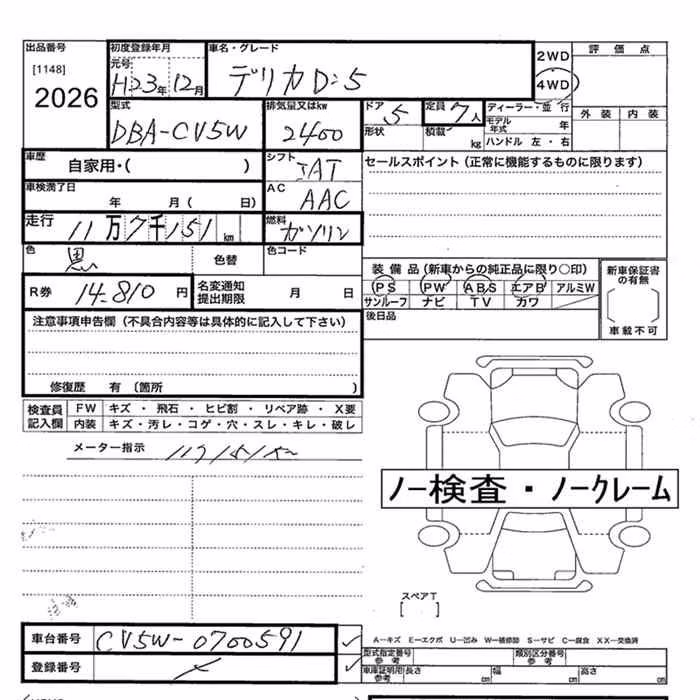 出品番号 初度登録年月 車名・グレード 評価点
[1148] 元号 H23年12月 デリカD:5 2WD
2026 4WD 外装 内装
型式 排気量又はkw ドア 5 定員 7人 ディーラー・並行
DBA-CV5W 2400 形状 積載 kg モデル年式 年
ハンドル 左・右
車歴 自家用・( ) シフト IAT セールスポイント (正常に機能するものに限ります)
車検満了日 年 月( 日) AC AAC
走行 11万7千151km 燃料 ガソリン
色 黒 色替 色コード
装備品 (新車からの純正品に限り〇印) 新車保証書の有無
R券 14-810円 名変通知提出期限 月 日 PS PW ABS エアB アルミW
サンルーフ ナビ TV カワ
後日品 車載不可
注意事項申告欄 (不具合内容等は具体的に記入して下さい)
修復歴 有 〔箇所 〕
検査員記入欄 FW キズ・飛石・ヒビ割・リペア跡・X要
内装 キズ・汚レ・コゲ・穴・スレ・キレ・破レ
メーター指示
ノー検査・ノークレーム
スペアT
[ ]
車台番号 CV5W-0700591
A-キズ E-エクボ U-凹み W-補修跡 S-サビ C-腐食 XX-交換済
登録番号
型式指定番号 参考 類別区分番号 参考
車庫証明用 参考 長さ cm 幅 cm 高さ cm